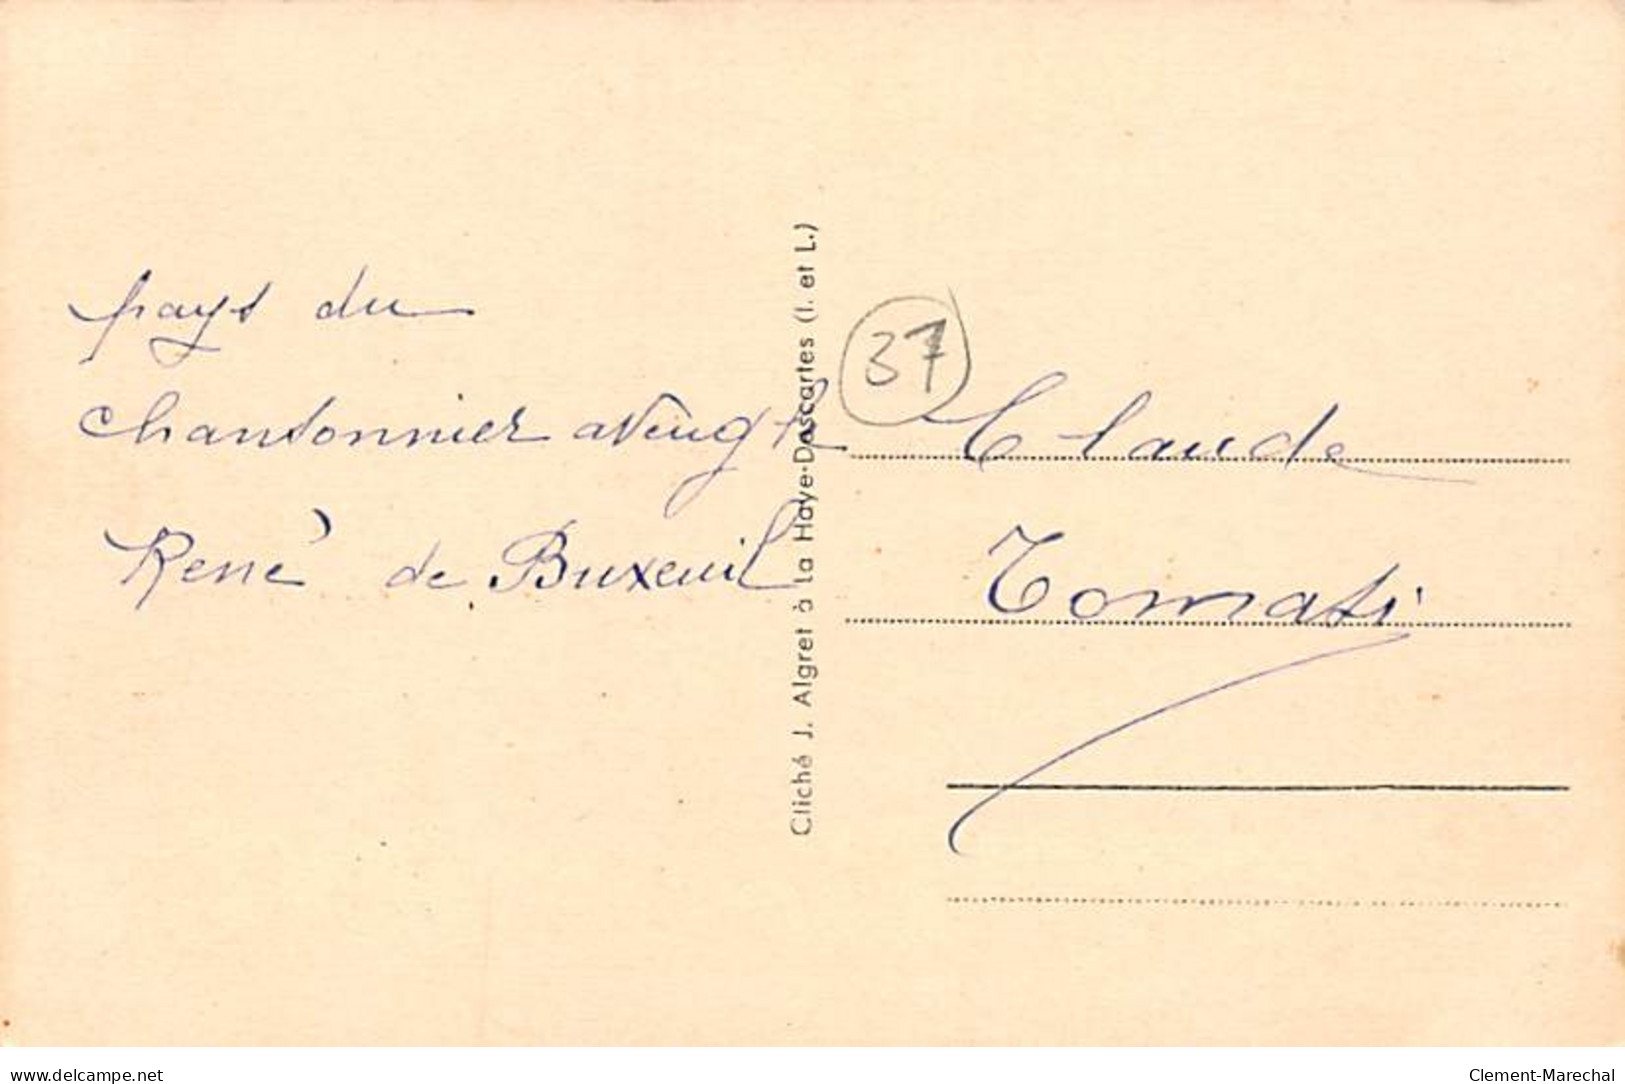 pays du
chansonnier aveugle
René de Buxeuil
Cliché J. Algret à la Haye-Descartes (I. et L.)
37
Claude
Tomasi
www.delcampe.net
Clement-Marechal